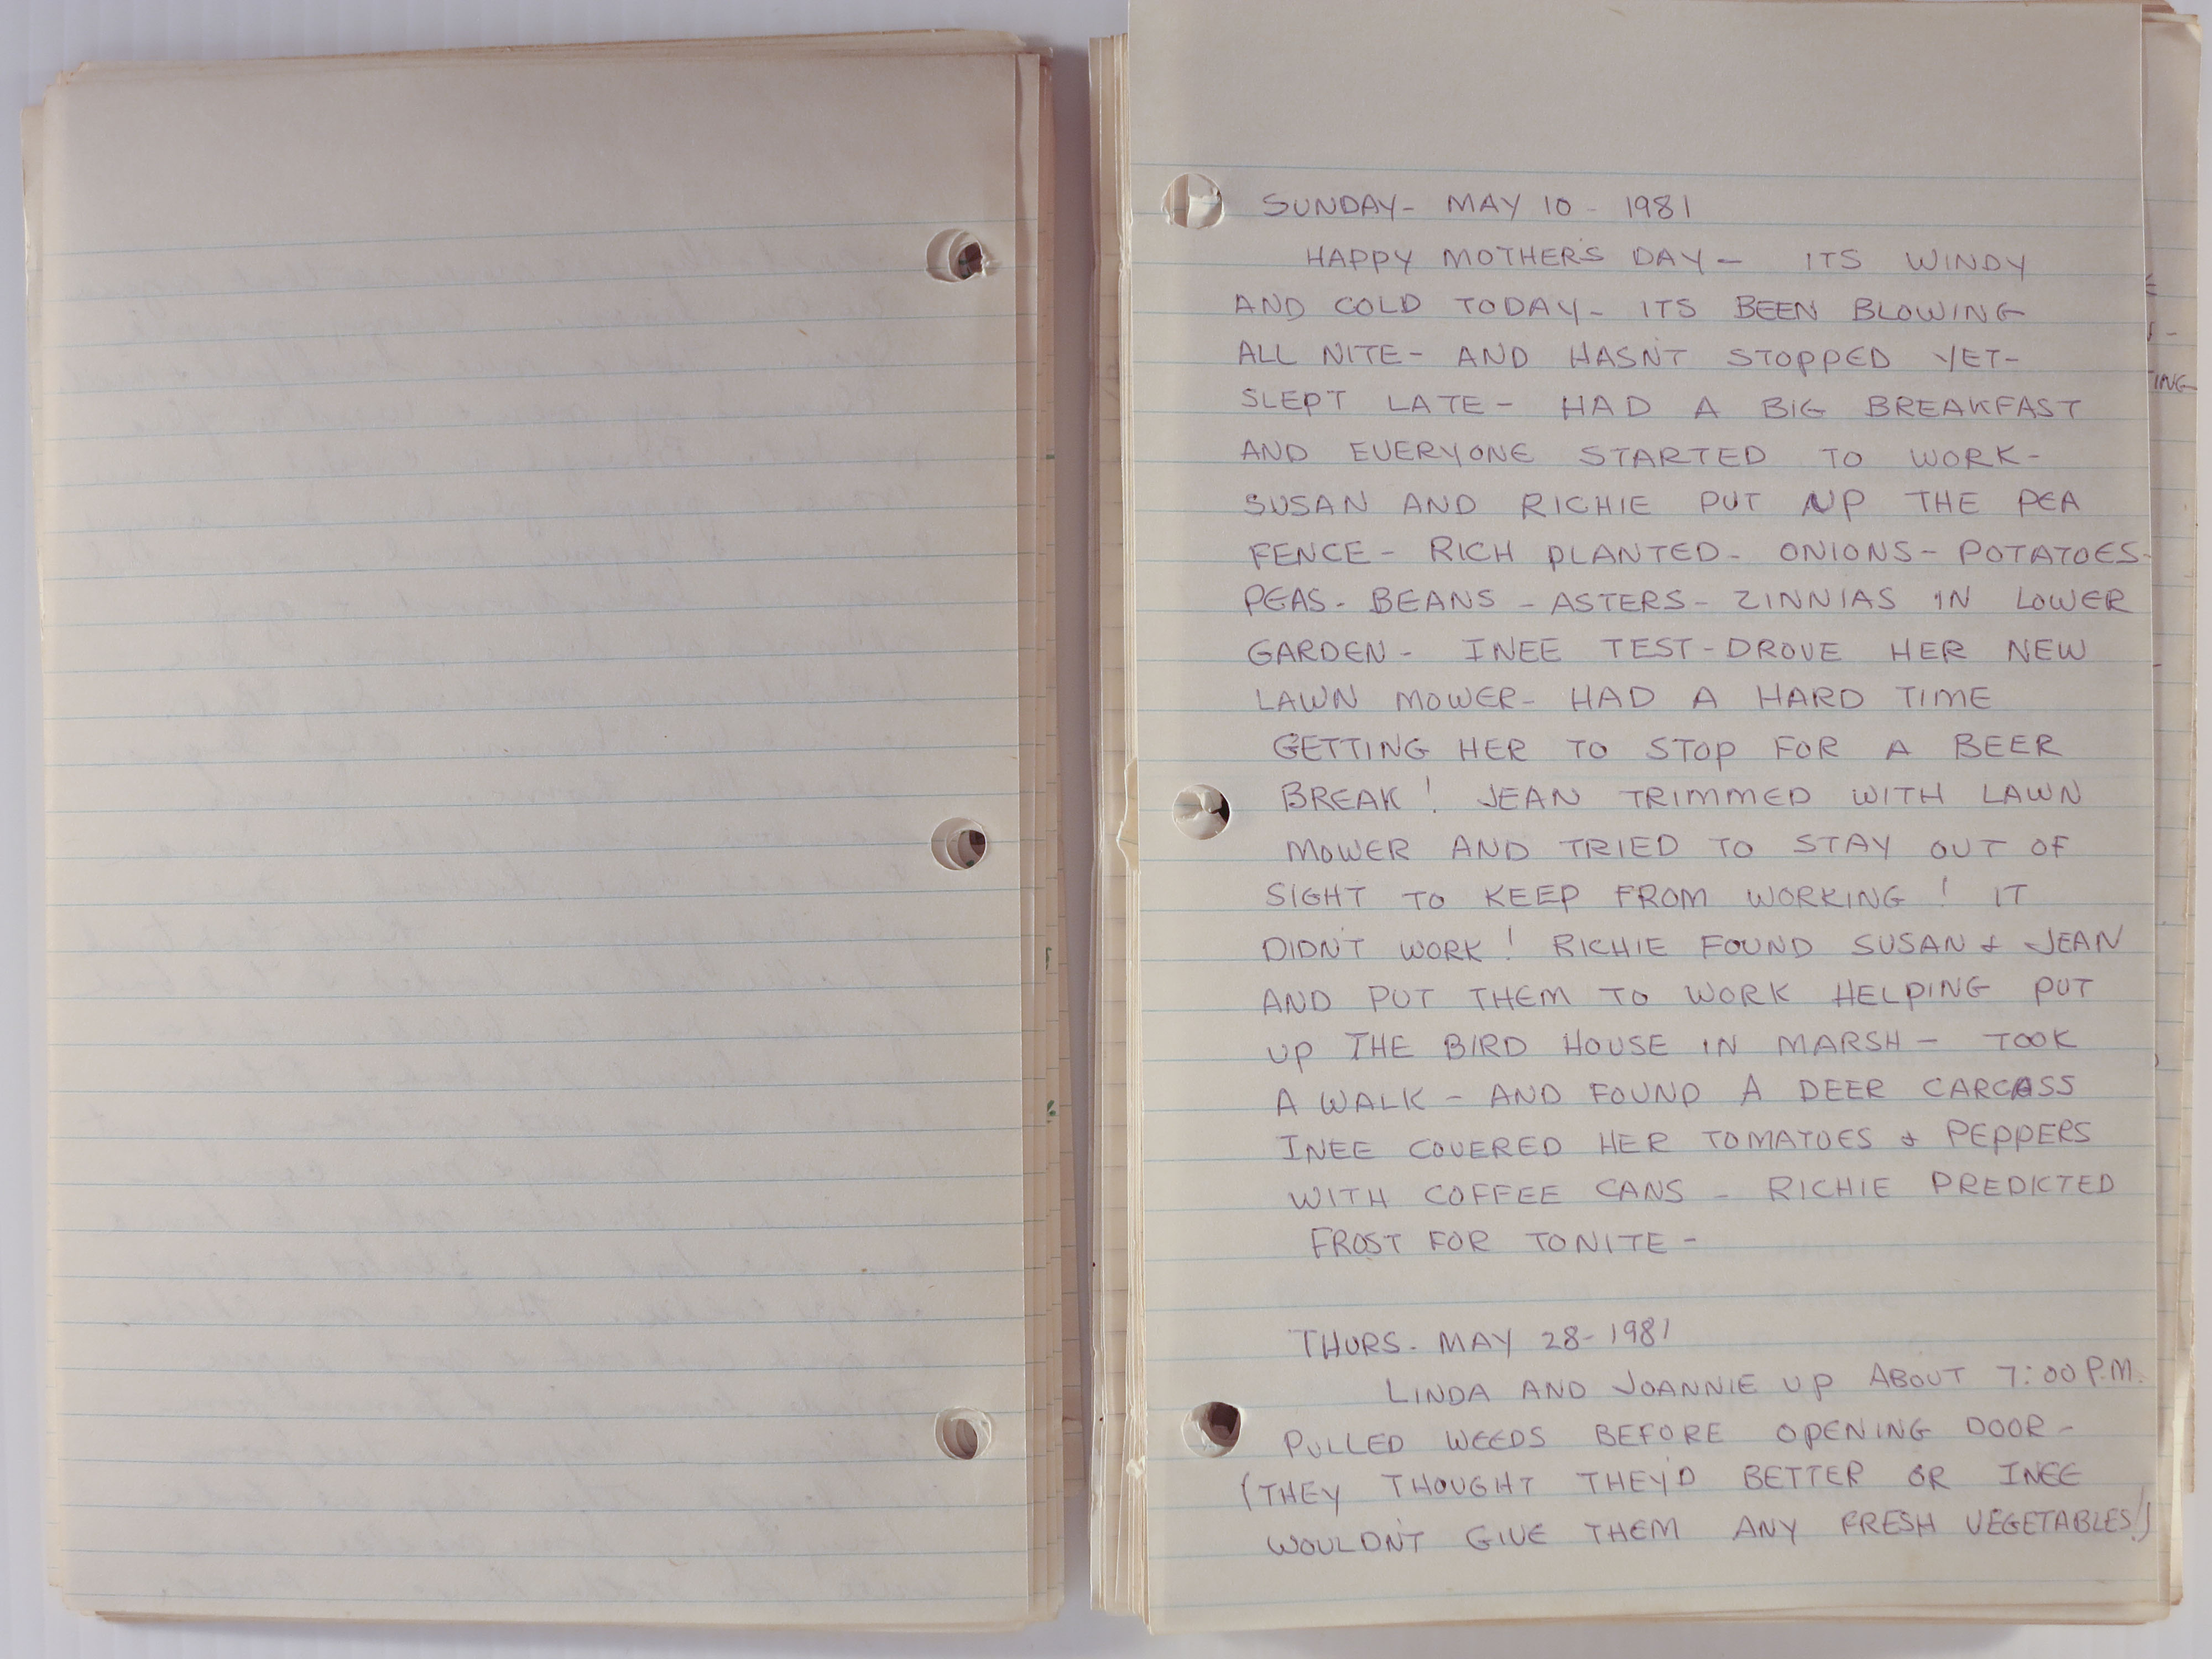 SUNDAY- MAY 10 - 1981
HAPPY MOTHER'S DAY - ITS WINDY
AND COLD TODAY - ITS BEEN BLOWING
ALL NITE - AND HASN'T STOPPED YET-
SLEPT LATE - HAD A BIG BREAKFAST
AND EVERYONE STARTED TO WORK-
SUSAN AND RICHIE PUT UP THE PEA
FENCE - RICH PLANTED - ONIONS - POTATOES-
PEAS - BEANS - ASTERS - ZINNIAS IN LOWER
GARDEN - INEE TEST-DROVE HER NEW
LAWN MOWER - HAD A HARD TIME
GETTING HER TO STOP FOR A BEER
BREAK! JEAN TRIMMED WITH LAWN
MOWER AND TRIED TO STAY OUT OF
SIGHT TO KEEP FROM WORKING! IT
DIDN'T WORK! RICHIE FOUND SUSAN & JEAN
AND PUT THEM TO WORK HELPING PUT
UP THE BIRD HOUSE IN MARSH - TOOK
A WALK - AND FOUND A DEER CARCASS
INEE COVERED HER TOMATOES & PEPPERS
WITH COFFEE CANS - RICHIE PREDICTED
FROST FOR TONITE -
THURS. MAY 28-1981
LINDA AND JOANNIE UP ABOUT 7:00 P.M.
PULLED WEEDS BEFORE OPENING DOOR -
(THEY THOUGHT THEY'D BETTER OR INEE
WOULDN'T GIVE THEM ANY FRESH VEGETABLES!)